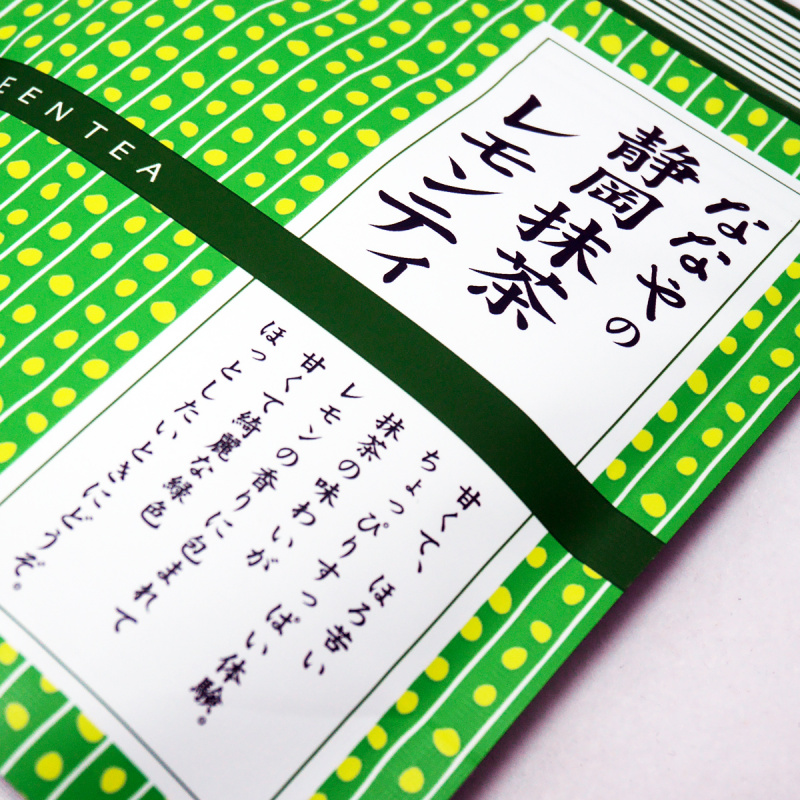 EEN TEA
ななやの
静岡抹茶
レモンティ
甘くて、ほろ苦い
ちょっぴりすっぱい体験。
抹茶の味わいが
レモンの香りに包まれて
甘くて綺麗な緑色
ほっとしたいときにどうぞ。